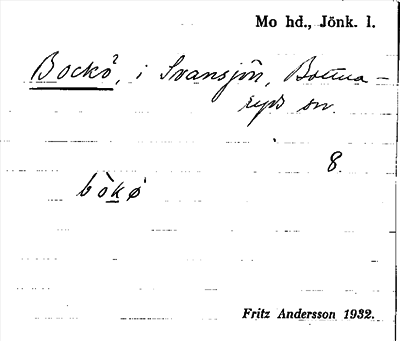 Mo hd., Jönk. l.
Bockö, i Svansjön, Bottna-
ryds sn.
8.
bòkø
Fritz Andersson 1932.